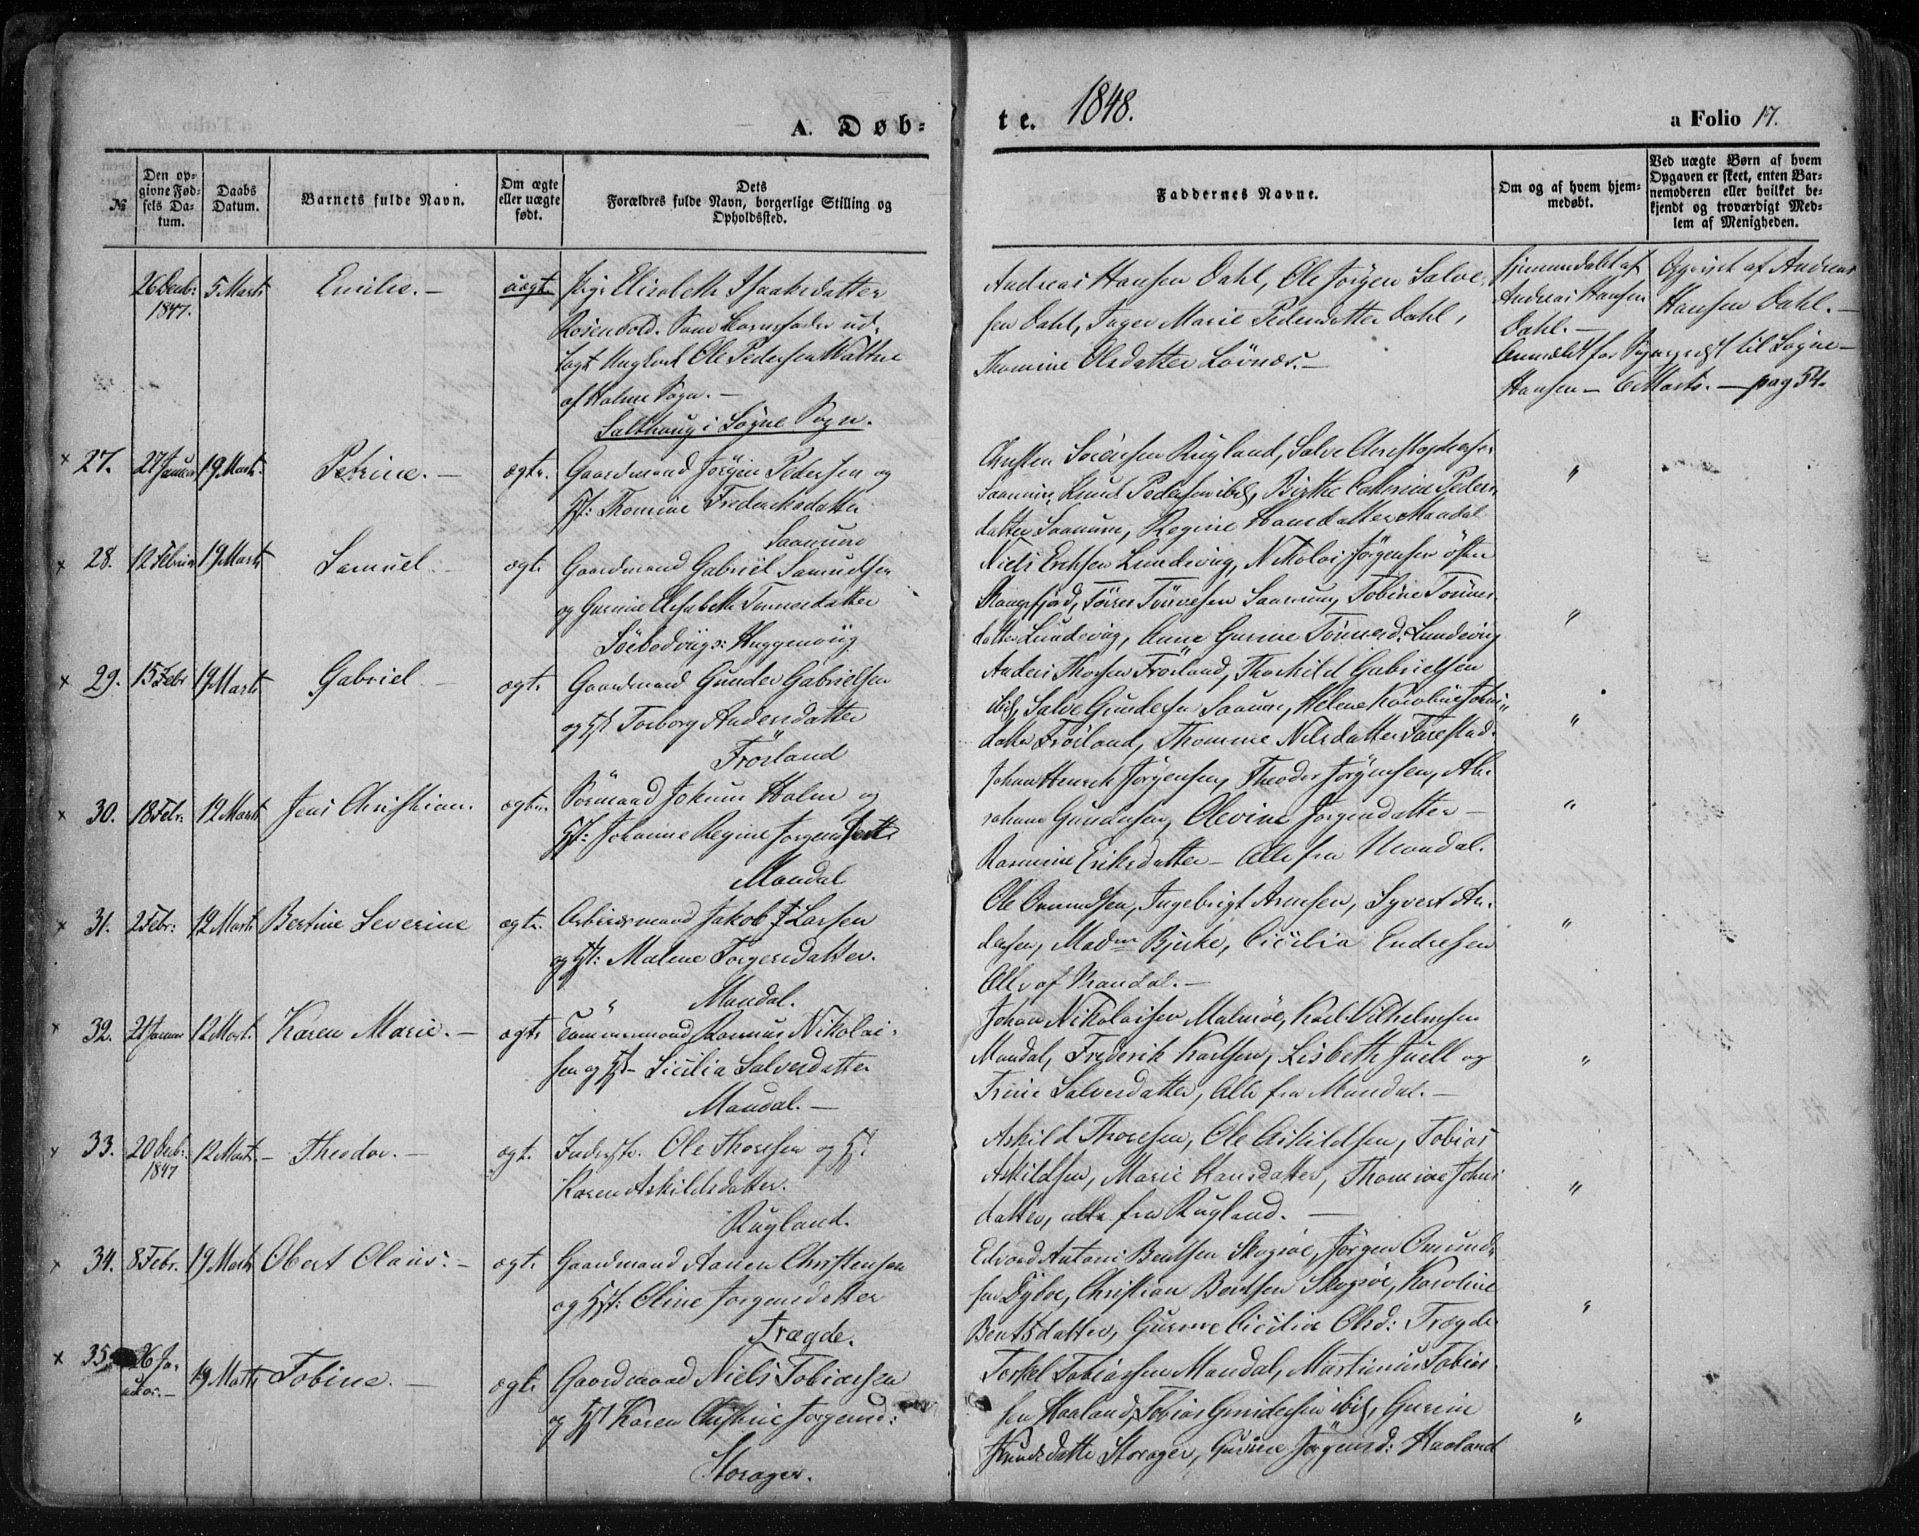 1848.
A. Døb-
te.
a Folio 17.
№
Den op-
givne Fød-
sels Da-
tum.
Daabs
Datum.
Barnets fulde Navn.
Om ægte
eller uægte
født.
Dets
Forældres fulde Navn, borgerlige Stilling og
Opholdssted.
Faddernes Navne.
Om og af hvem hjem-
medøbt.
Ved uægte Børn af hvem
Opgaven er skeet, enten Bar-
nemoderen eller hvilket be-
kjendt og troværdigt Med-
lem af Menigheden.
26 Decb:
1847.
5 Marts
Emilie. —
uægt.
Pige Elisabeth Isaaksdatter
Rosenvold. Som Barnefader ud-
lagt Ungkarl Ole Pedersen
af Holme Sogn. —
Salthaug i Søgne Sogn.
Andreas Hansen Dahl, Ole Jørgen Salve-
sen Dahl, Inger Marie Pedersdatter Dahl,
Thomine Olsdatter Løvnæs. —
Hjemmedøbt af
Andreas Hansen
Dahl. —
Opgivet af Andreas
Hansen Dahl. —
Anmeldt for Sognepræst til Søgne —
Hansen — 6 Marts. — pag 54.
× 27.
27 Januar
19 Marts.
Petrine. —
ægte.
Gaardmand Jørgen Pedersen og
Hst: Thomine Fredriksdatter
Saanum
Christen Sørensen Rugland, Salve Christophersen
Saanum, Knud Pedersen ibid, Birthe Cathrine Peders-
datter Saanum, Regine Hansdatter Mandal
"
× 28.
12 Februar
19 Marts
Samuel —
ægt.
Gaardmand Gabriel Samuelsen
og Gurine Elisabeth Tønnesdatter
Niels Eriksen Lundevig, Nikolai Jørgensen
Tørres Tørresen Saanum, Tobine Tønnes-
datter Lundevig, Anne Gurine Tønnesd: Lundevig
"
× 29.
15 Febr
19 Marts
Gabriel —
ægt.
Gaardmand Gunder Gabrielsen
og Hst Torborg Andersdatter
Frøsland
Anders Thorsen Frøsland, Thorkild Gabrielsen
ibid, Salve Gundersen Saanum, Helene Karoline
datter Frøsland, Thomine Nilsdatter Farestad.
"
× 30.
18 Febr:
12 Marts
Jens Christian.
ægte.
Sømand Jokum Holm og
Hst: Johanne Regine Jørgensdatter
Mandal
Johan Henrik Jørgensen, Theodor Jørgensen, Ab-
raham Gundersen, Olevine Jørgensdatter —
Rasmine Eriksdatter — Alle fra Mandal.
"
× 31.
2 Febr:
12 Marts
Bertine Severine
ægte.
Arbeidsmand Jakob J Larsen
og Hst: Malene Torgersdatter.
Mandal.
Ole Omundsen, Ingebrigt Arnesen, Syvert An-
dersen, Madm Bjerke, Cicilia Endresen
Alle af Mandal. —
"
× 32.
21 Januar
12 Marts.
Karen Marie. —
ægt.
Tømmermand Rasmus Nikolai-
sen og Hst — Sicilia Salvesdatter
Mandal. —
Johan Nikolaisen Malmøe, Karl Vilhelmsen
Mandal, Frederik Karlsen, Lisbeth Juell og
Trine Salvesdatter, Alle fra Mandal. —
"
× 33.
20 Decb:
1847
12 Marts. —
Theodor. —
ægt.
Inderst. Ole Thoresen og Hst
Karen Askildsdatter.
Rugland.
Askild Thoresen, Ole Askildsen, Tobias
Askildsen, Marie Hansdatter, Thomine Johns-
datter, alle fra Rugland. —
"
× 34.
8 Febr.
19 Marts
Obert Olaus. —
ægt.
Gaardmand Aanen Christensen
og Hst: Oline Jørgensdatter
Trægde.
Edvard Antoni Bentsen Skogsøe, Jørgen Omund-
sen Dyboe, Christian Bentsen Skogsøe, Karoline
Bentsdatter, Gurine Cicilie Olsd: Trægde
"
× 35.
26 Ja-
nuar. —
19 Marts
Tobine. —
ægt.
Gaardmand Niels Tobiassen
og Hst Karen Christine Jørgensd:
Storager.
Terkel Tobiassen Mandal, Martinius Tobias-
sen Haaland, Tobias Gundersen ibid, Gurine
Knudsdatter Storager, Gurine Jørgensd: Haaland
"